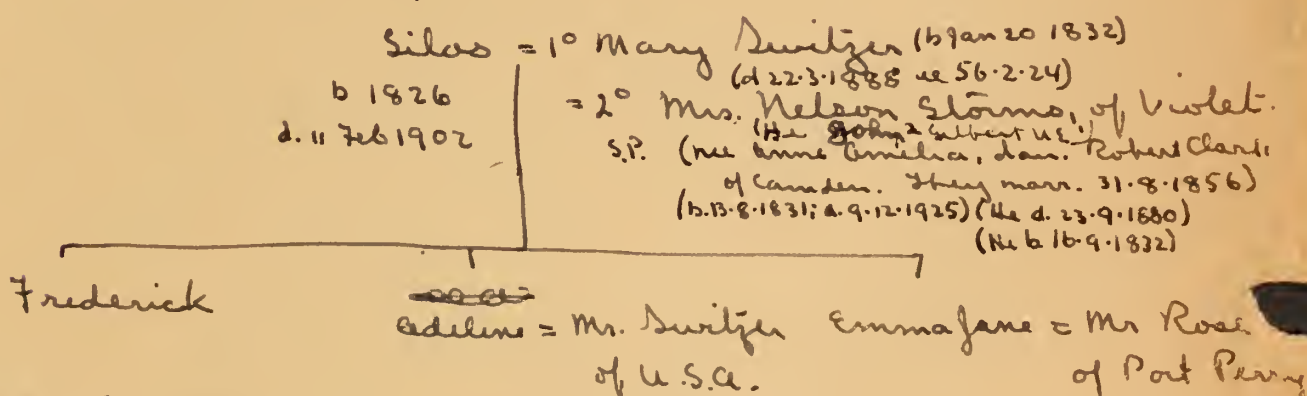 Silas = 1° Mary Switzer (b Jan 20 1832)
b 1826 (d 22.3.1888 ae 56.2.24)
d. 11 Feb 1902 = 2° Mrs. Nelson Storms, of Violet.
(He John² Gilbert U.E.¹)
S.P. (nee Anne Amelia, dau. Robert Clark
of Camden. They marr. 31.8.1856)
(b.13.8.1831; d.9.12.1925) (He d. 23.9.1880)
(He b 16.9.1832)
Frederick
Adeline = Mr. Switzer Emma Jane = Mr Rose
of U.S.A. of Port Perry